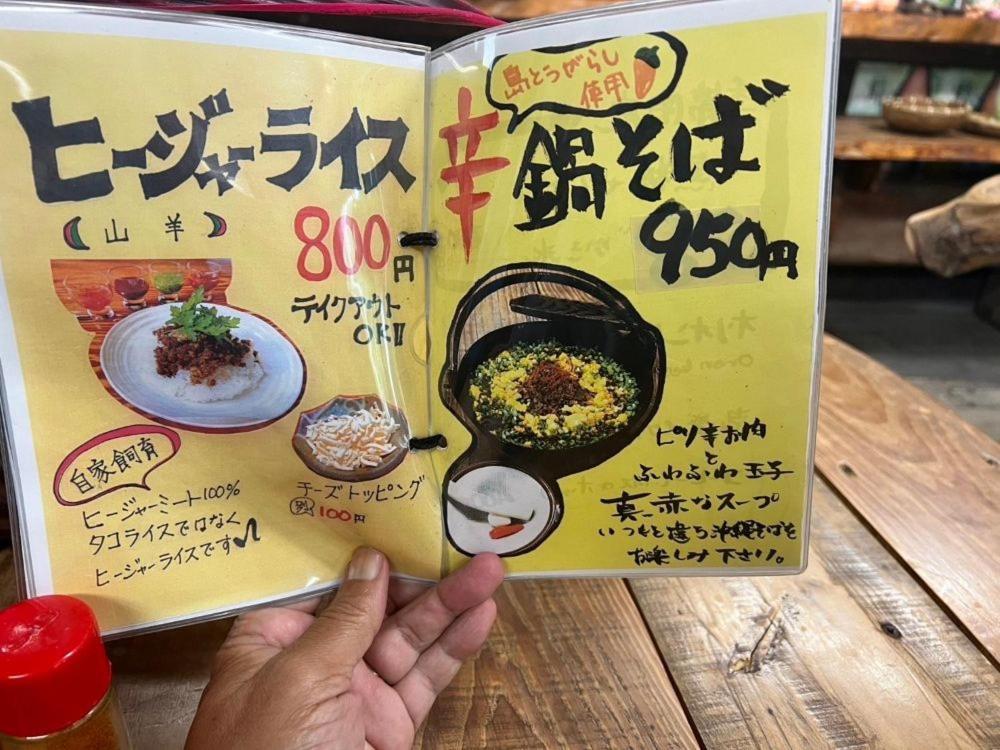 ヒージャーライス
(山羊)
800円
テイクアウト
OK!!
自家飼育
ヒージャーミート100%
タコライスではなく
ヒージャーライスです
チーズトッピング
別100円
島とうがらし
使用
辛鍋そば
950円
ピリ辛お肉
と
ふわふわ玉子
真っ赤なスープ
いつもと違う沖縄そばを
お楽しみ下さい。